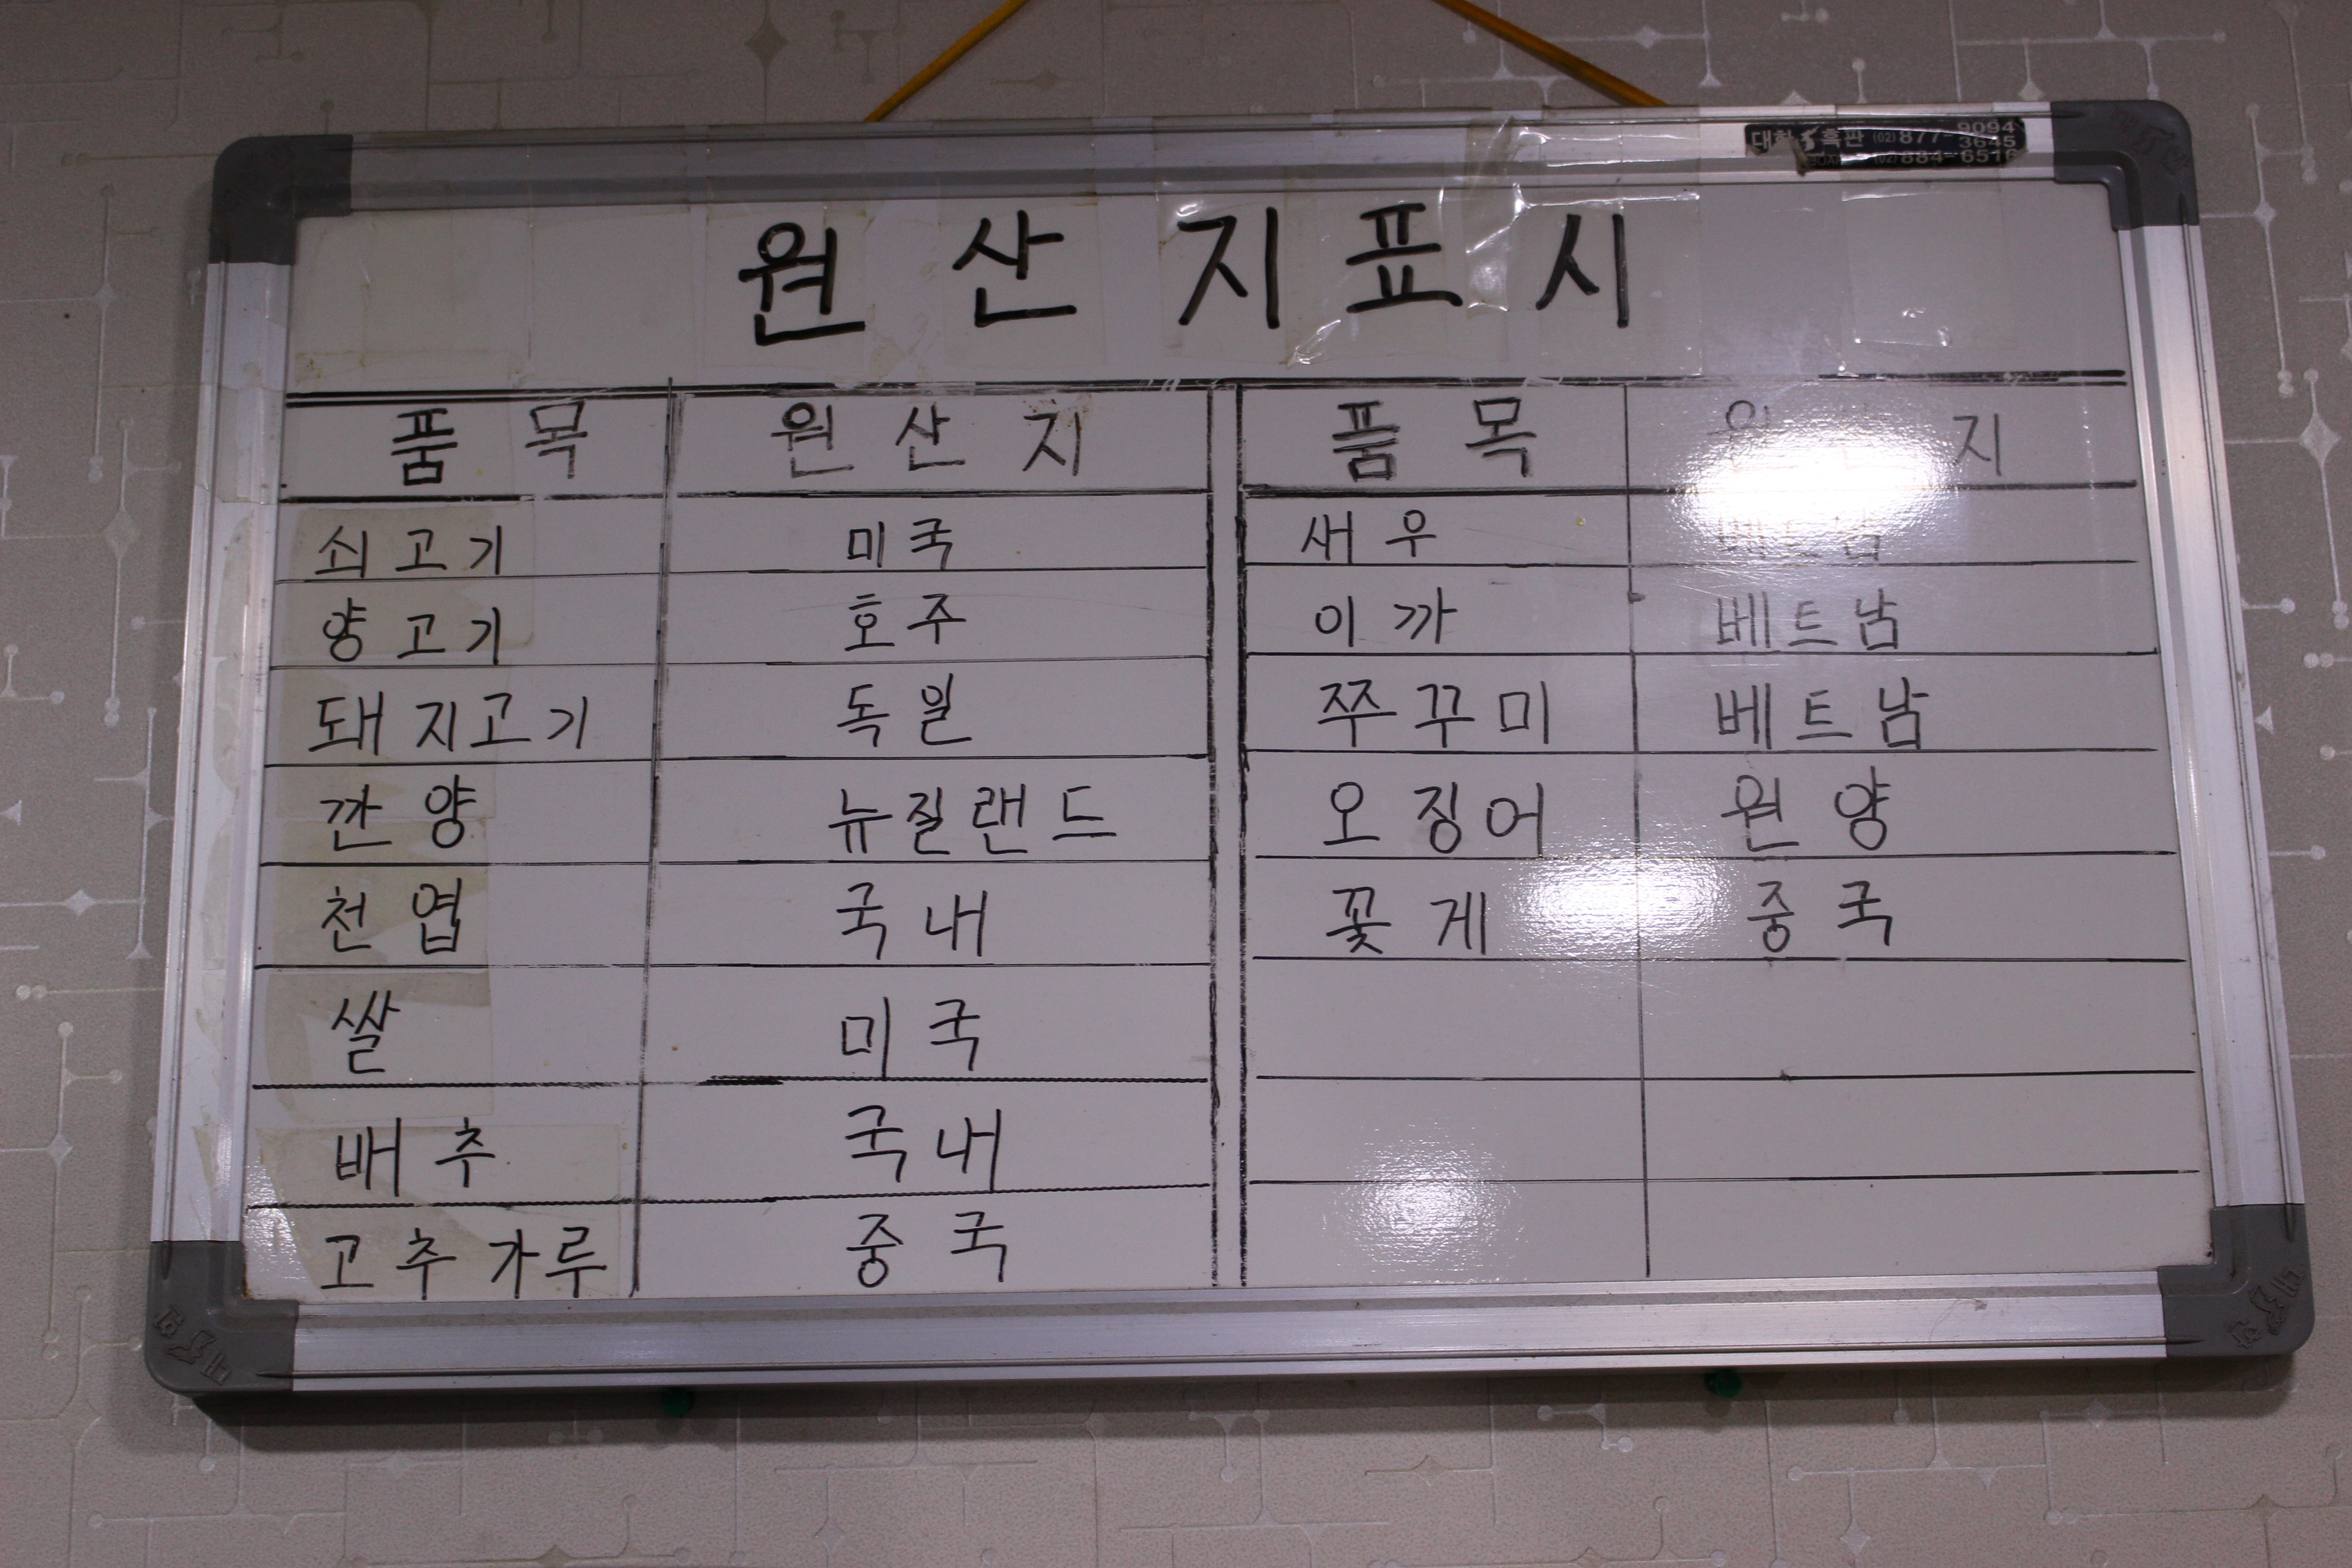 대한 흑판 (02) 877-9094
3645
(02) 884-6516
원산지표시
품목 원산지 품목 원산지
쇠고기 미국 새우 베트남
양고기 호주 이까 베트남
돼지고기 독일 쭈꾸미 베트남
깐양 뉴질랜드 오징어 원양
천엽 국내 꽃게 중국
쌀 미국
배추 국내
고추가루 중국